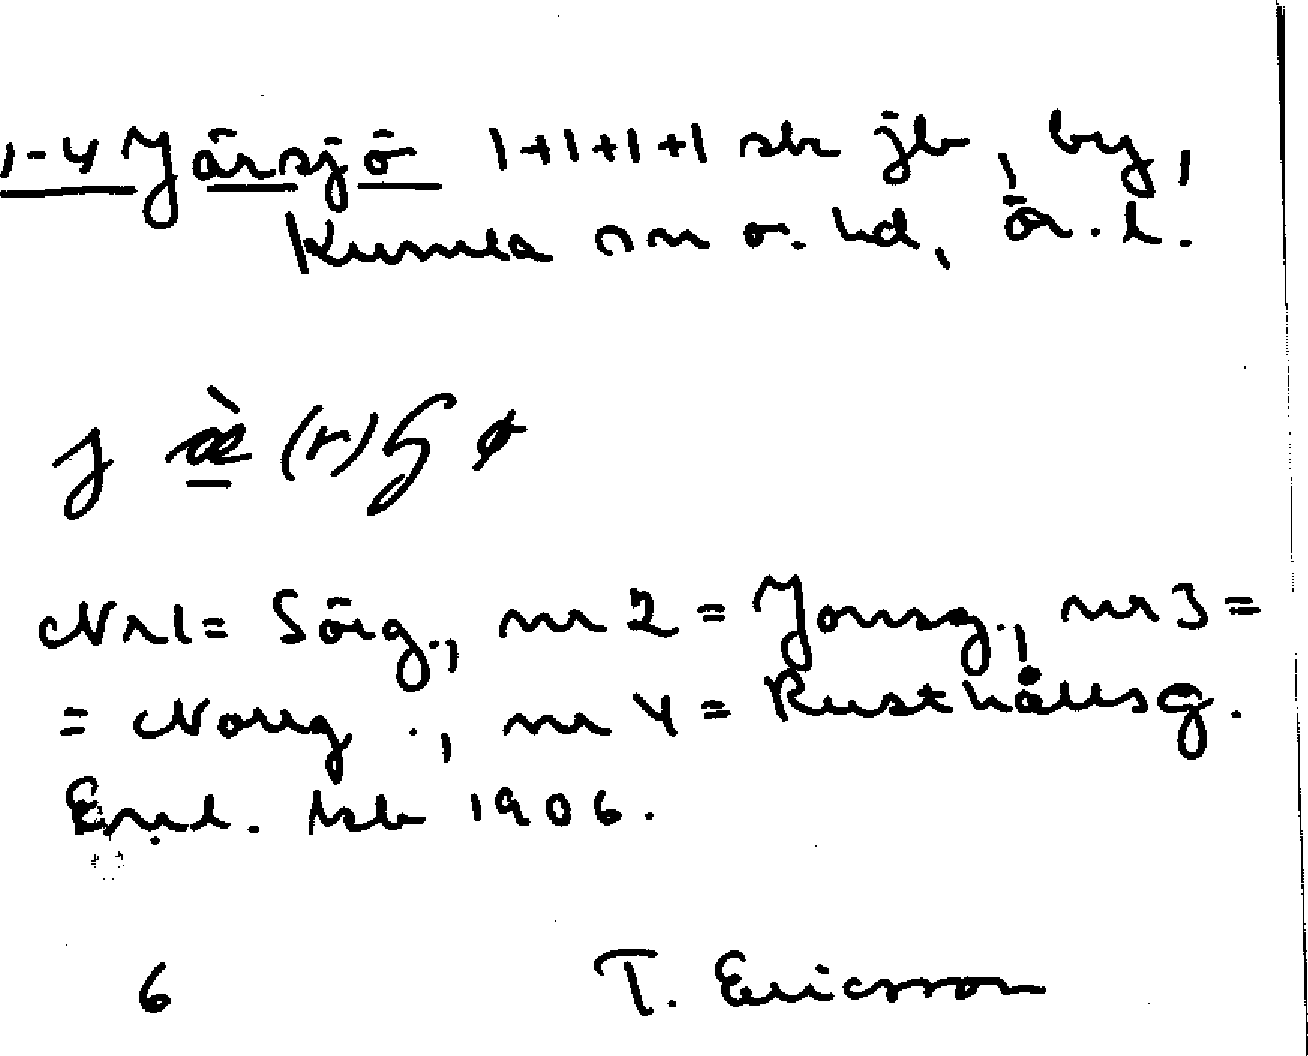 1-4 Järsjö 1+1+1+1 sk jb, by,
Kumla sn o. hd, Ör. l.
j æ̀ (r) ʃ ø
Nr 1 = Sörg., nr 2 = Jonsg., nr 3 =
= Norrg., nr 4 = Rusthållsg.
Enl. Isb 1906.
6 T. Ericsson